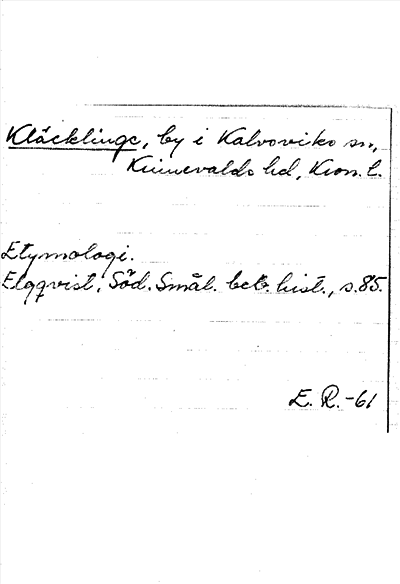 Kläcklinge, by i Kalvsviks sn,
Kinnevalds hd, Kron. l.
Etymologi.
Elgqvist, Söd. Smål. beb. hist., s. 85.
E. R. -61